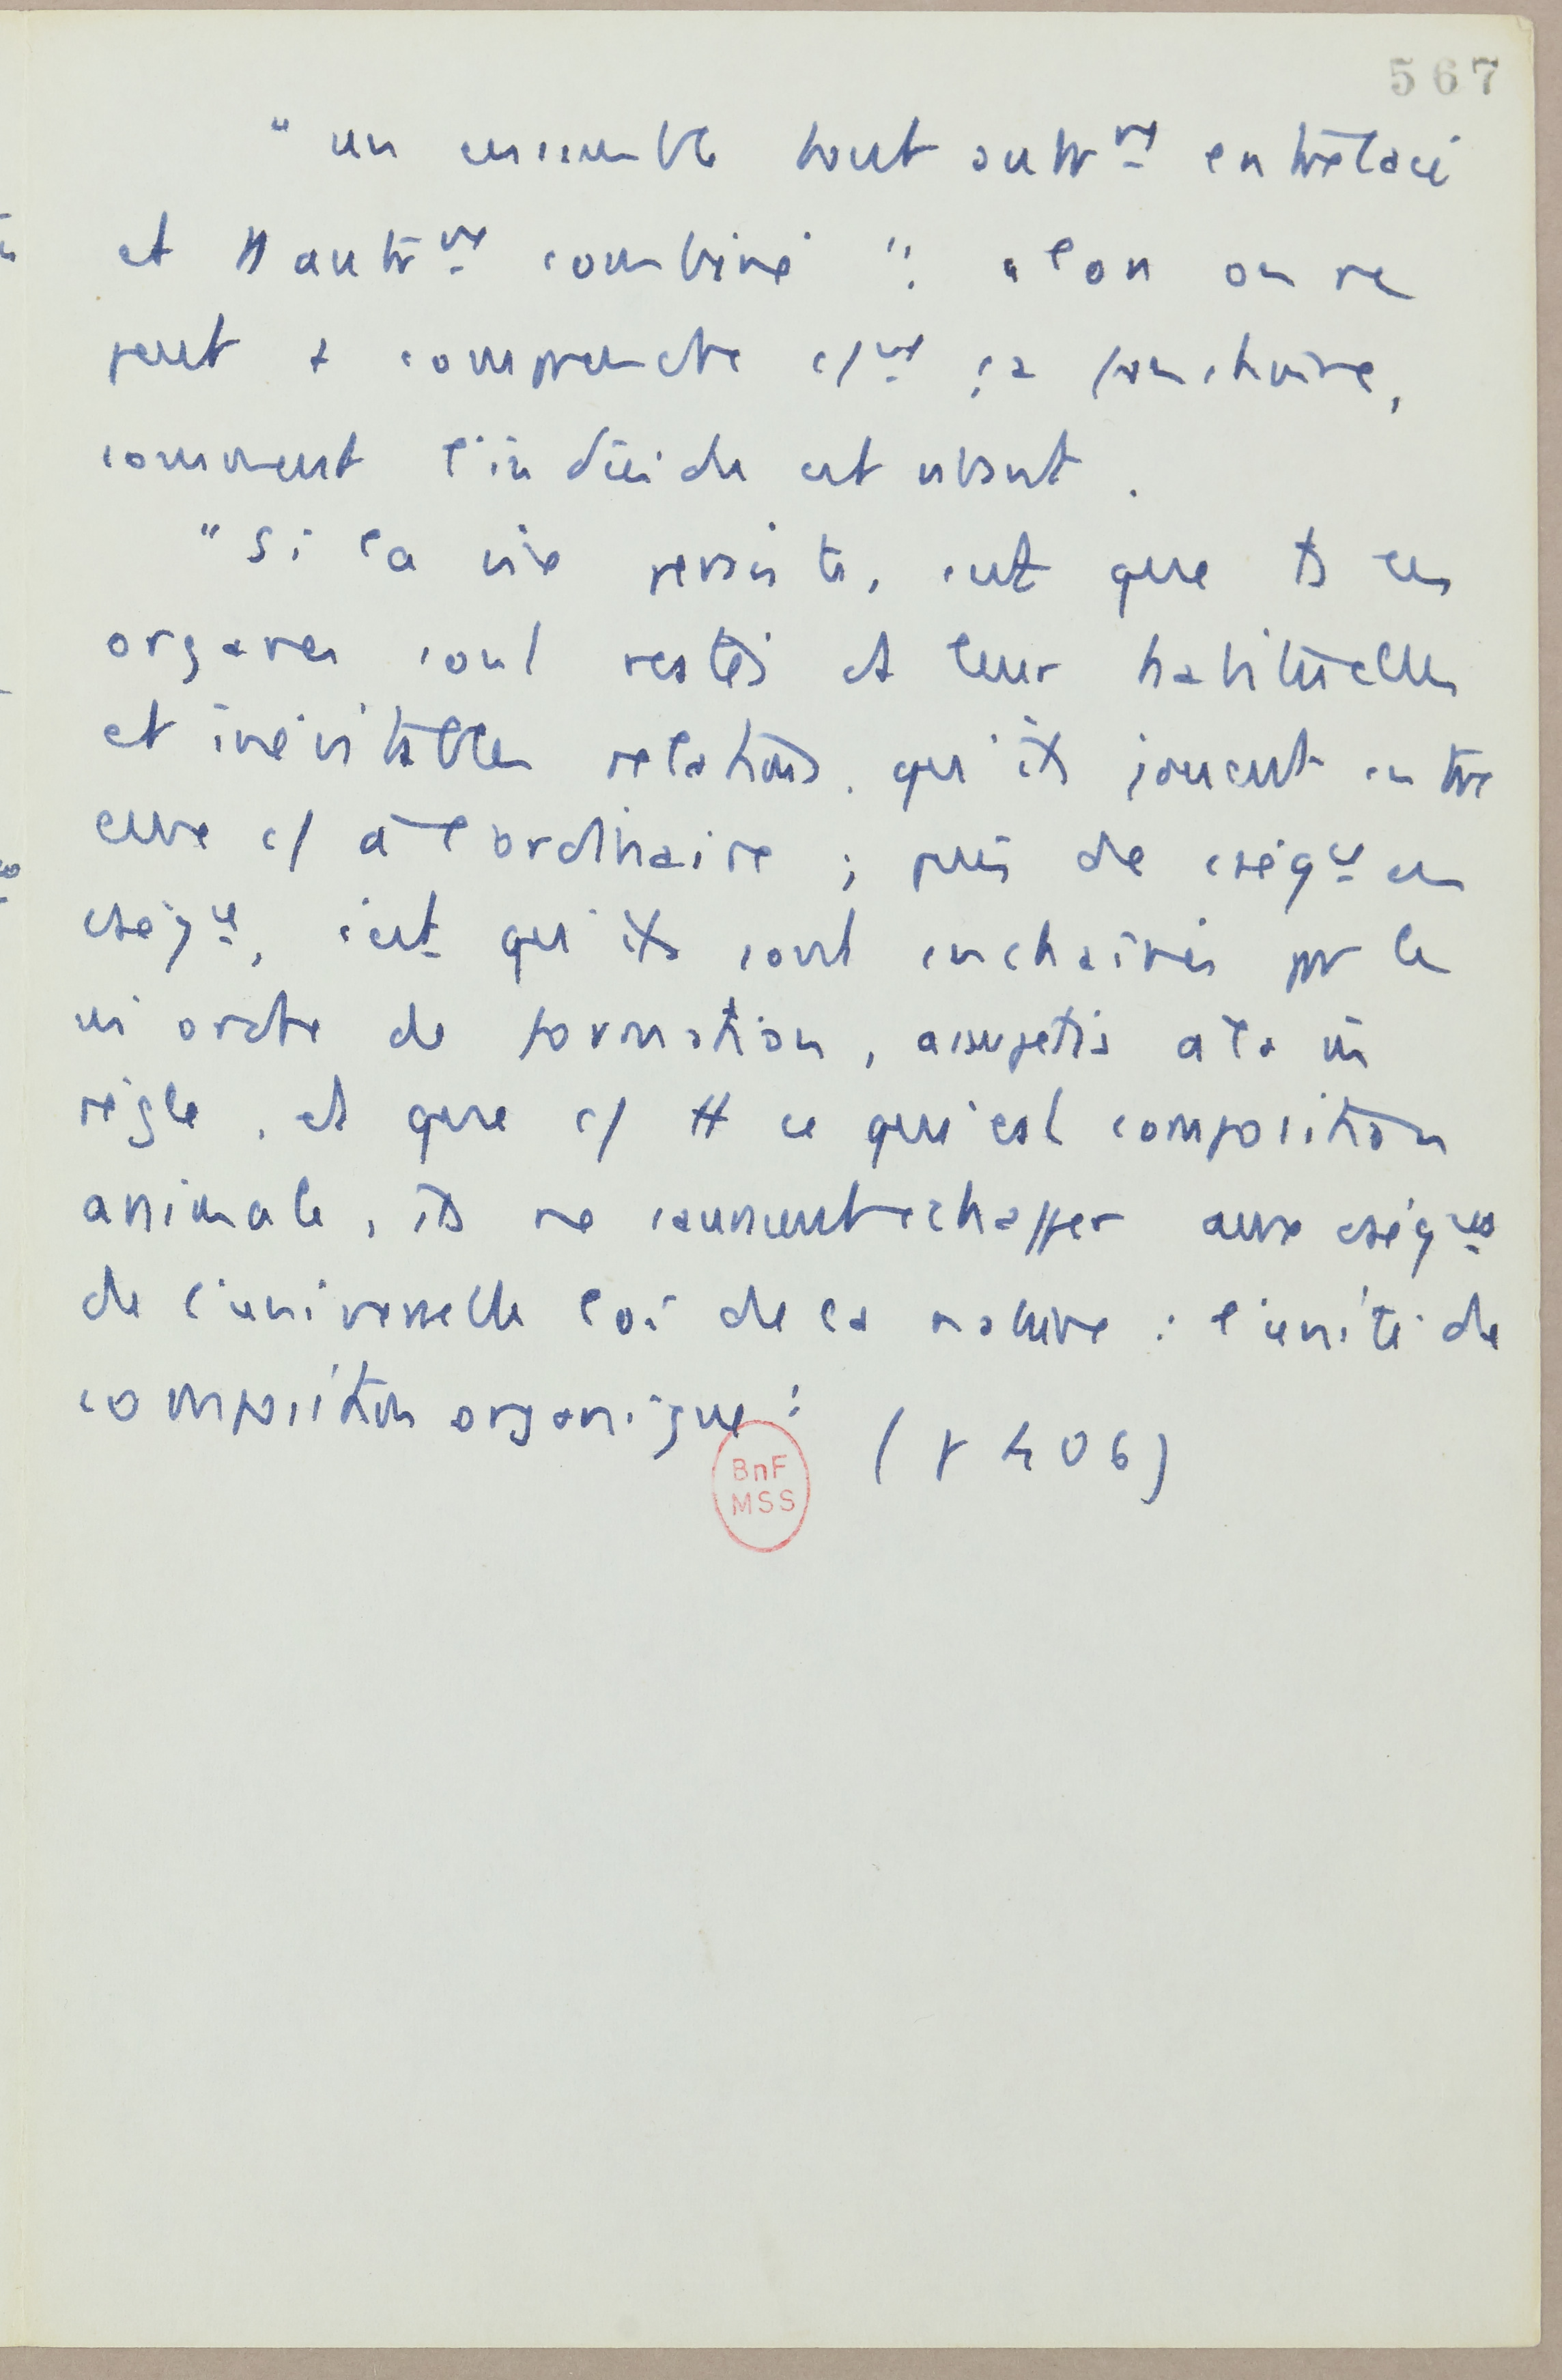 567
" un ensemble tout autrᵐᵗ entrelacé
et tt autrᵐᵗ combiné ". alors on ne
peut + comprendre c/ᵐᵗ ça fonctionne,
comment l'individu est vivant.
" Si la vie persiste, c'est que ts ces
organes sont restés ds leur habituelles
et inévitables relations, qu'ils jouent entre
eux c/ à l'ordinaire ; puis de cséqᶜᵉ en
cséqᶜᵉ, c'est qu'ils sont enchaînés par le
m̂ ordre de formation, assujettis à la m̂
règle, et que c/ tt ce qui est composition
animale, ils ne sauraient échapper aux cséqᶜᵉˢ
de l'universelle loi de la nature : l'unité de
composition organique "
(p 406)
BnF
MSS